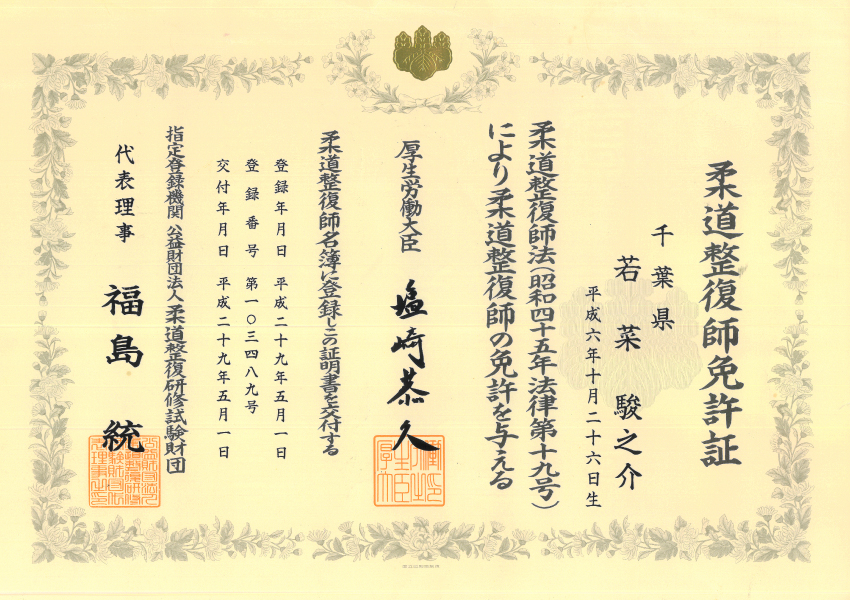 柔道整復師免許証
千葉県
若菜駿之介
平成六年十月二十六日生
柔道整復師法(昭和四十五年法律第十九号)
により柔道整復師の免許を与える
厚生労働大臣 塩崎恭久
柔道整復師名簿に登録しこの証明書を交付する
登録年月日 平成二十九年五月一日
登録番号 第一〇三四八九号
交付年月日 平成二十九年五月一日
指定登録機関 公益財団法人柔道整復研修試験財団
代表理事 福島統